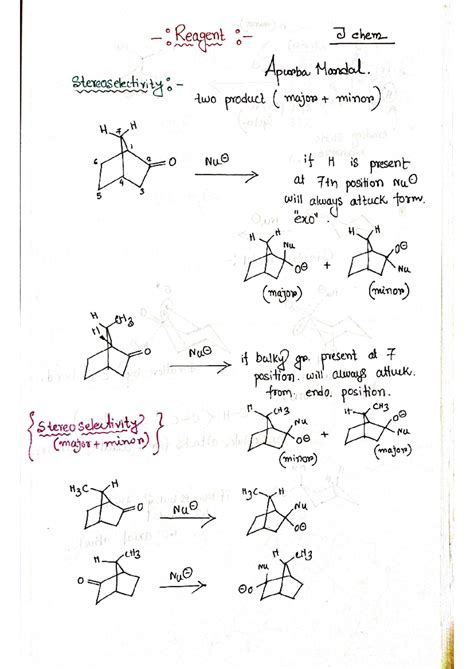 -: Reagent :-
J chem
Apurba Mandal.
Stereoselectivity :-
two product ( major + minor)
H 7 H
6 1 2 O
5 4 3
Nu⊖
if H is present
at 7th position Nu⊖
will always attuck form
"exo".
H H Nu O⊖ + H H O⊖ Nu
(major) (minor)
H CH3
H O
Nu⊖
if bulky gp. present at 7
position. will always attuck
from. endo. position.
{ Stereoselectivity
(major + minor) }
H CH3 Nu O⊖ + H CH3 O⊖ Nu
(minor) (major)
H3C H O Nu⊖ H3C H Nu O⊖
H CH3 O Nu⊖ Nu H CH3 ⊖O